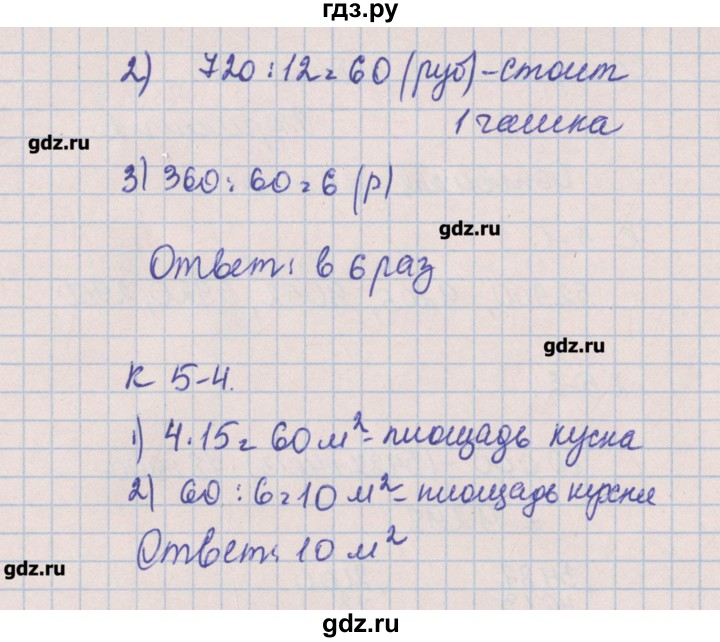 гдз.ру
2) 720 : 12 = 60 (руб) - стоит
1 чашка
gdz.ru
3) 360 : 60 = 6 (р)
gdz.ru
Ответ: в 6 раз
gdz.ru
К 5-4.
1) 4 · 15 = 60 м² - площадь куска
2) 60 : 6 = 10 м² - площадь кухни
Ответ: 10 м²
gdz.ru
gdz.ru